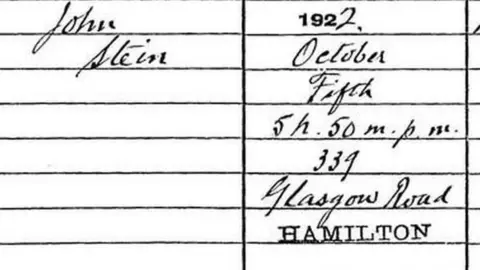 John
Stein
1922.
October
Fifth
5 h. 50 m. p.m.
339
Glasgow Road
HAMILTON